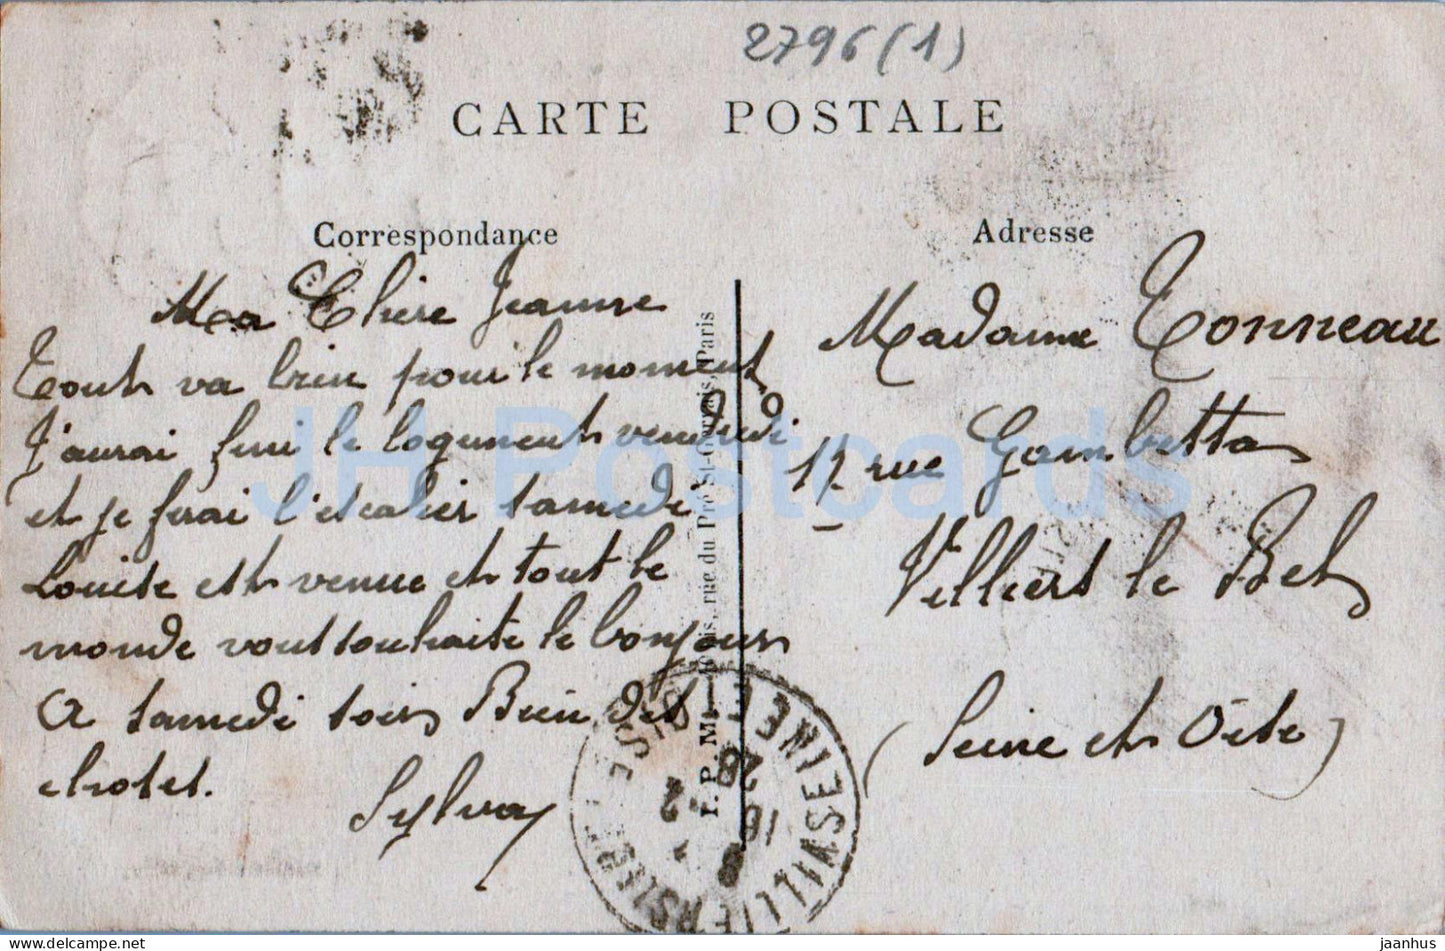 2796(1)
CARTE POSTALE
Correspondance
Ma Chère Jeanne
Tout va bien pour le moment
J'aurai fini le logement vendredi
et je ferai l'escalier samedi
Louise est venue et tout le
monde vous souhaite le bonjour
A samedi soir Bien des
choses.
Sylva
Adresse
Madame Tonneau
17 rue Gambetta
Villiers le Bel
(Seine et Oise)
rue du Pré St-Gervais, Paris
I. P. M.
SEINE ET OISE
16
28
JH Postcards
jaanhus